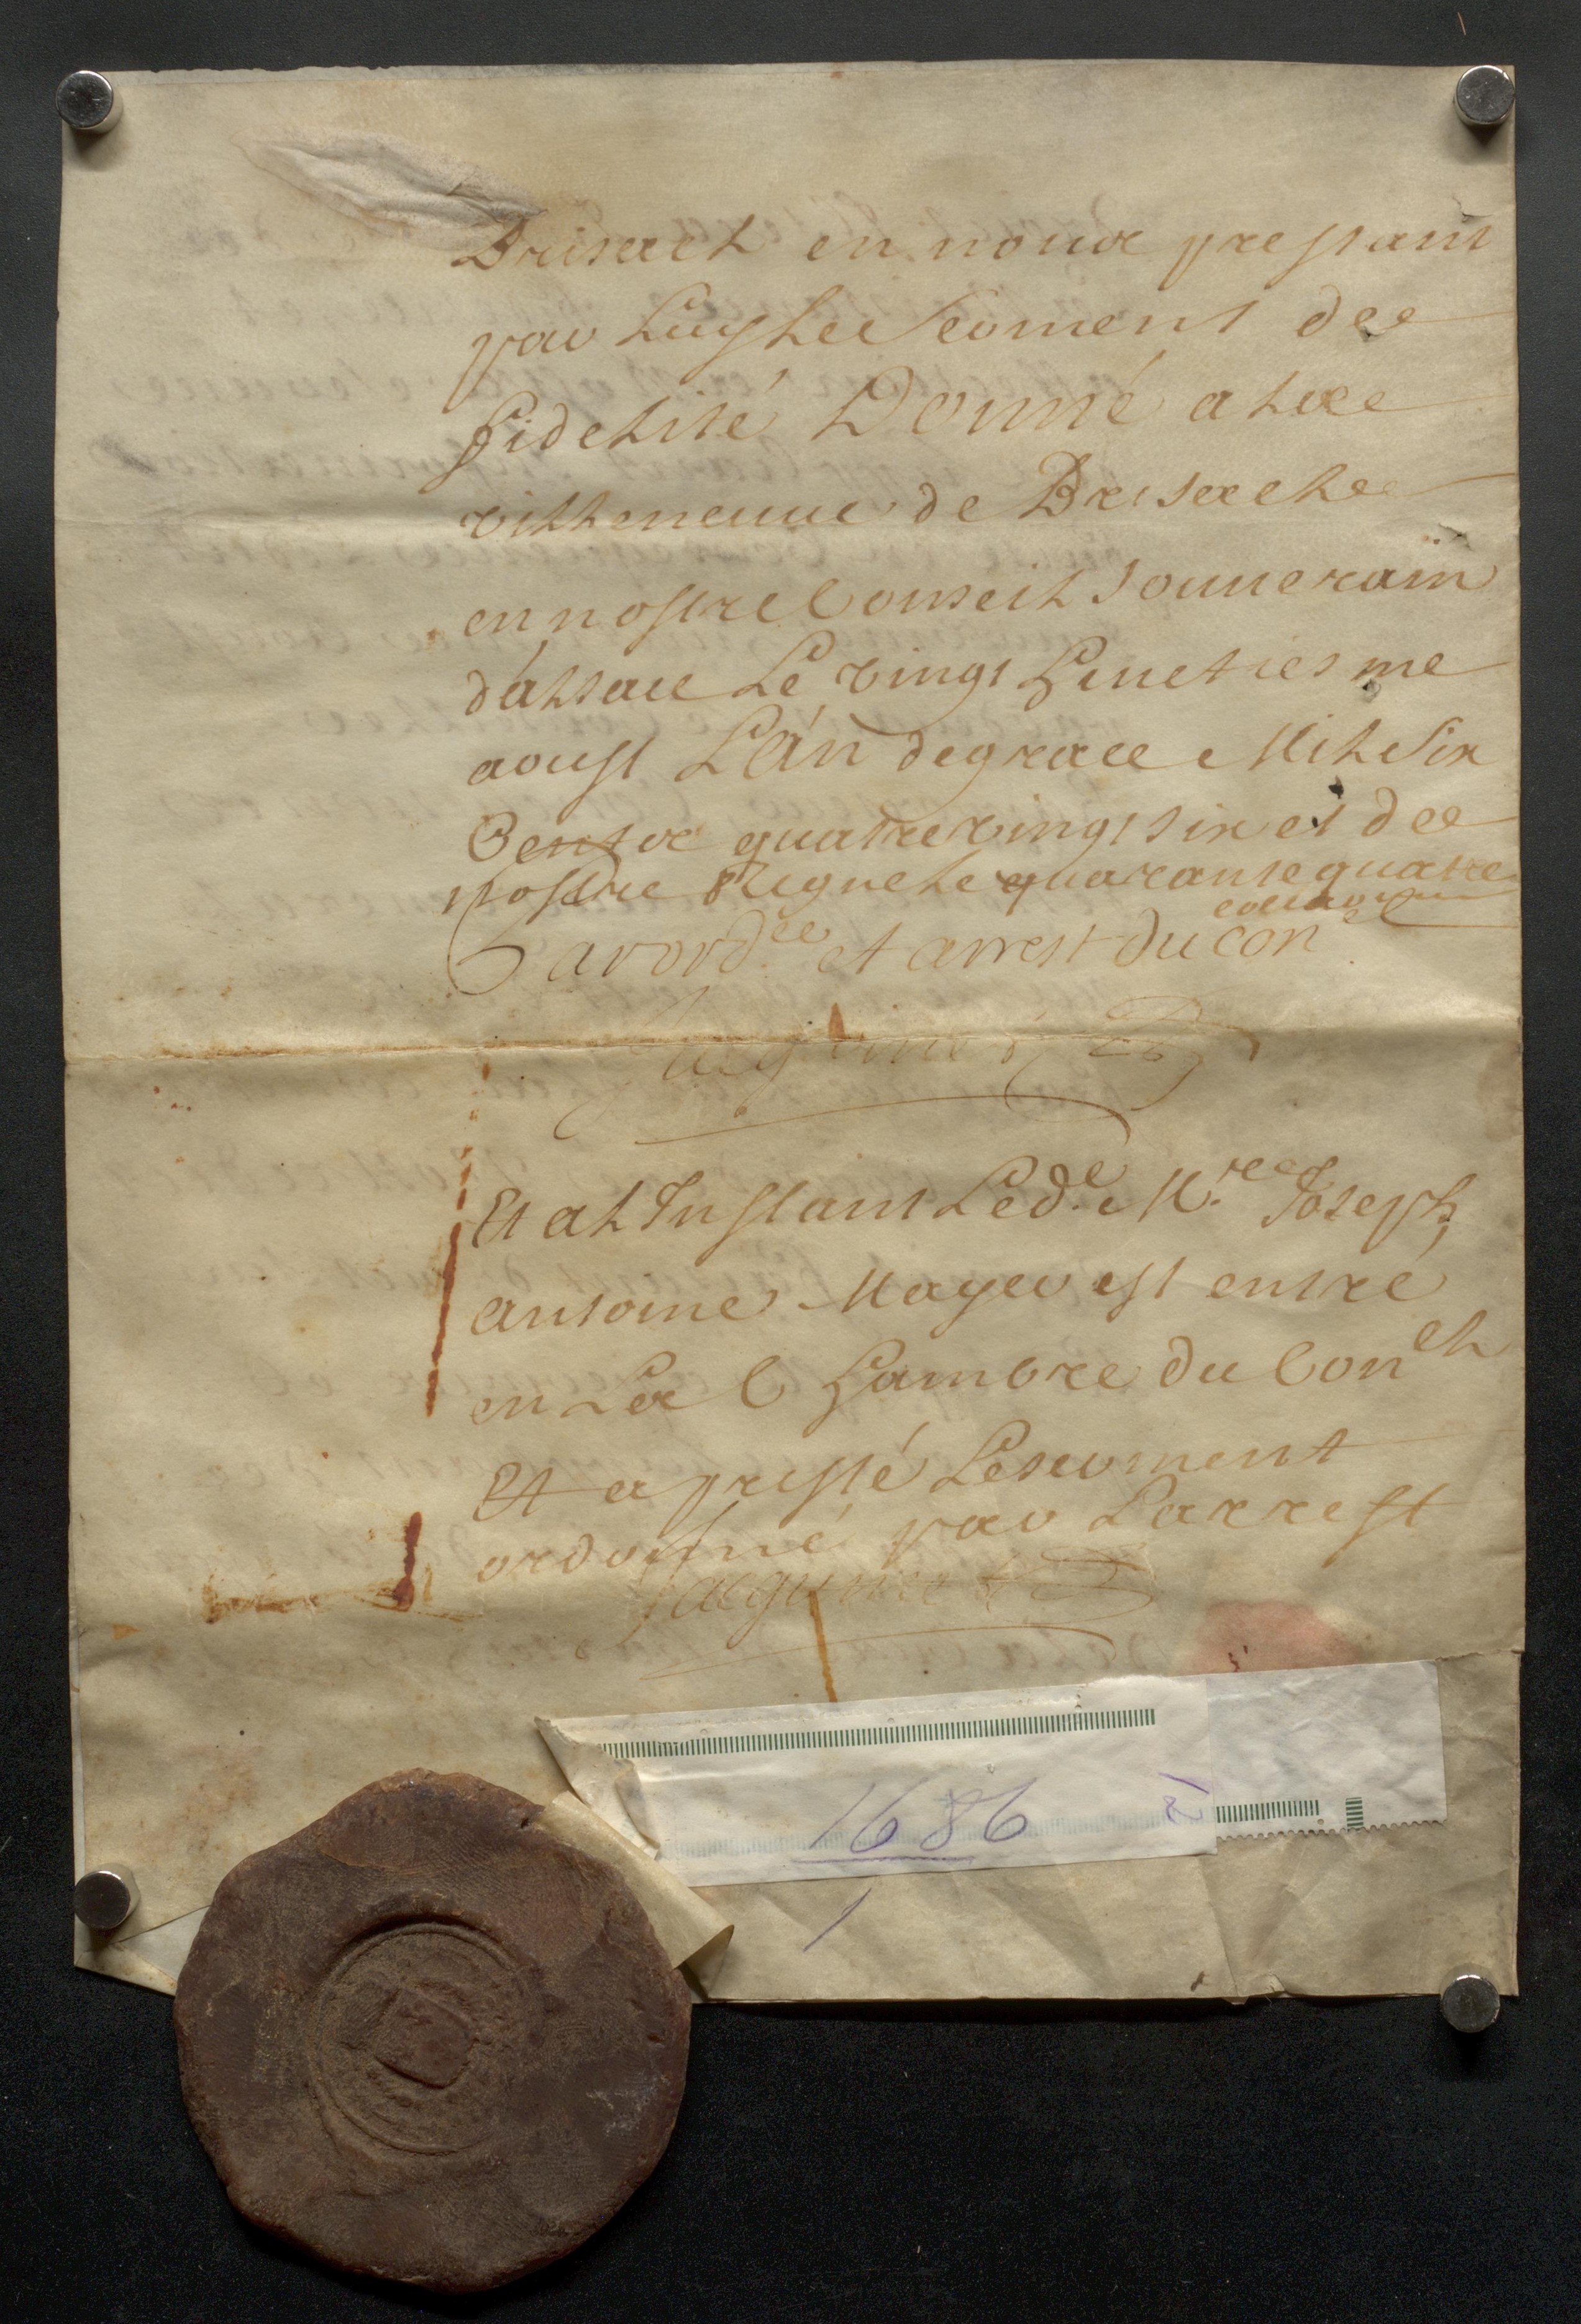 Brisach en nous prestant
par luy le serment de
fidelité Donné a la
villeneuve de Brisach
en nostre Conseil souuerain
d'alsace Le vingt huictiesme
aoust L'an de grace Mil Six
Cents quatrevingt six et de
nostre Regne le quarante quatre
collaõn
Par ordce et arrest du con
Et al Instant Led. Mre Joseph
antoine Mayer est entré
en La Chambre du Conel
Et a presté Le serment
ordonné par Larrest
1686
1